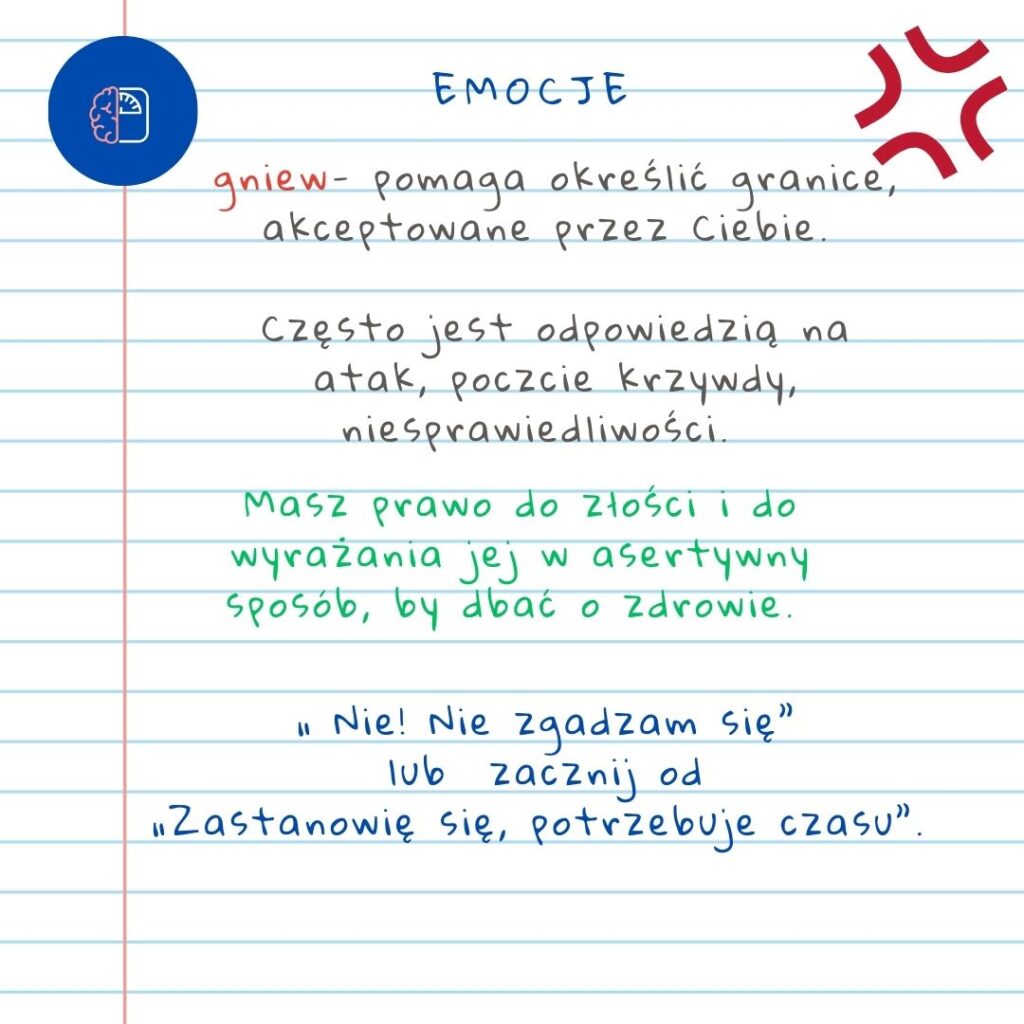 EMOCJE
gniew- pomaga określić granice,
akceptowane przez Ciebie.
Często jest odpowiedzią na
atak, poczcie krzywdy,
niesprawiedliwości.
Masz prawo do złości i do
wyrażania jej w asertywny
sposób, by dbać o zdrowie.
„ Nie! Nie zgadzam się”
lub zacznij od
„Zastanowię się, potrzebuje czasu”.